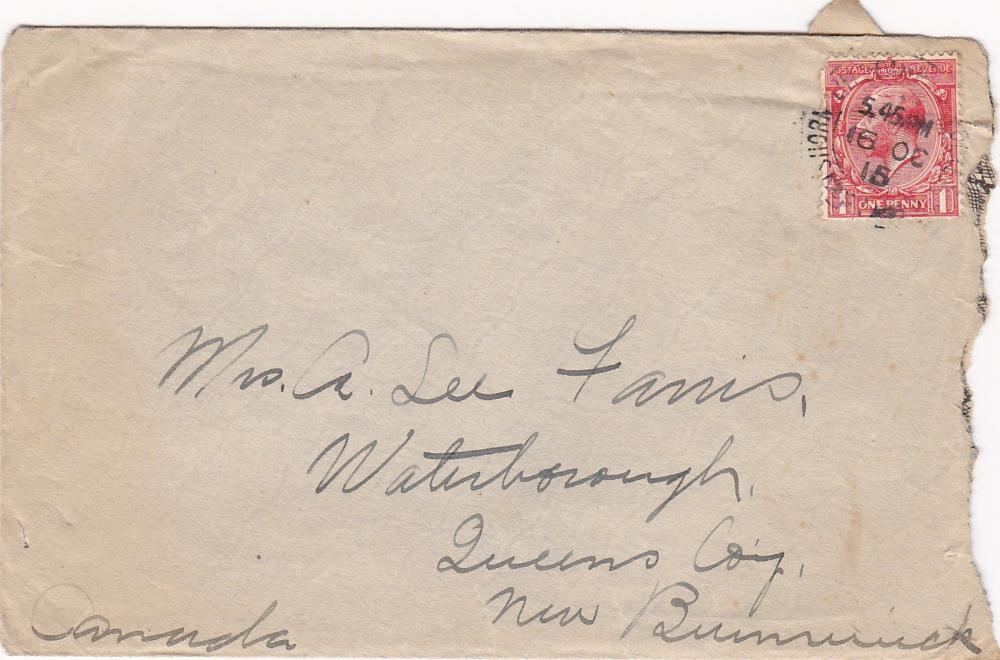 POSTAGE REVENUE
5.45 PM
16 OC
16
1 ONE PENNY 1
Mrs. A. Lee Farris,
Waterborough,
Queens Co'y,
New Brunswick
Canada